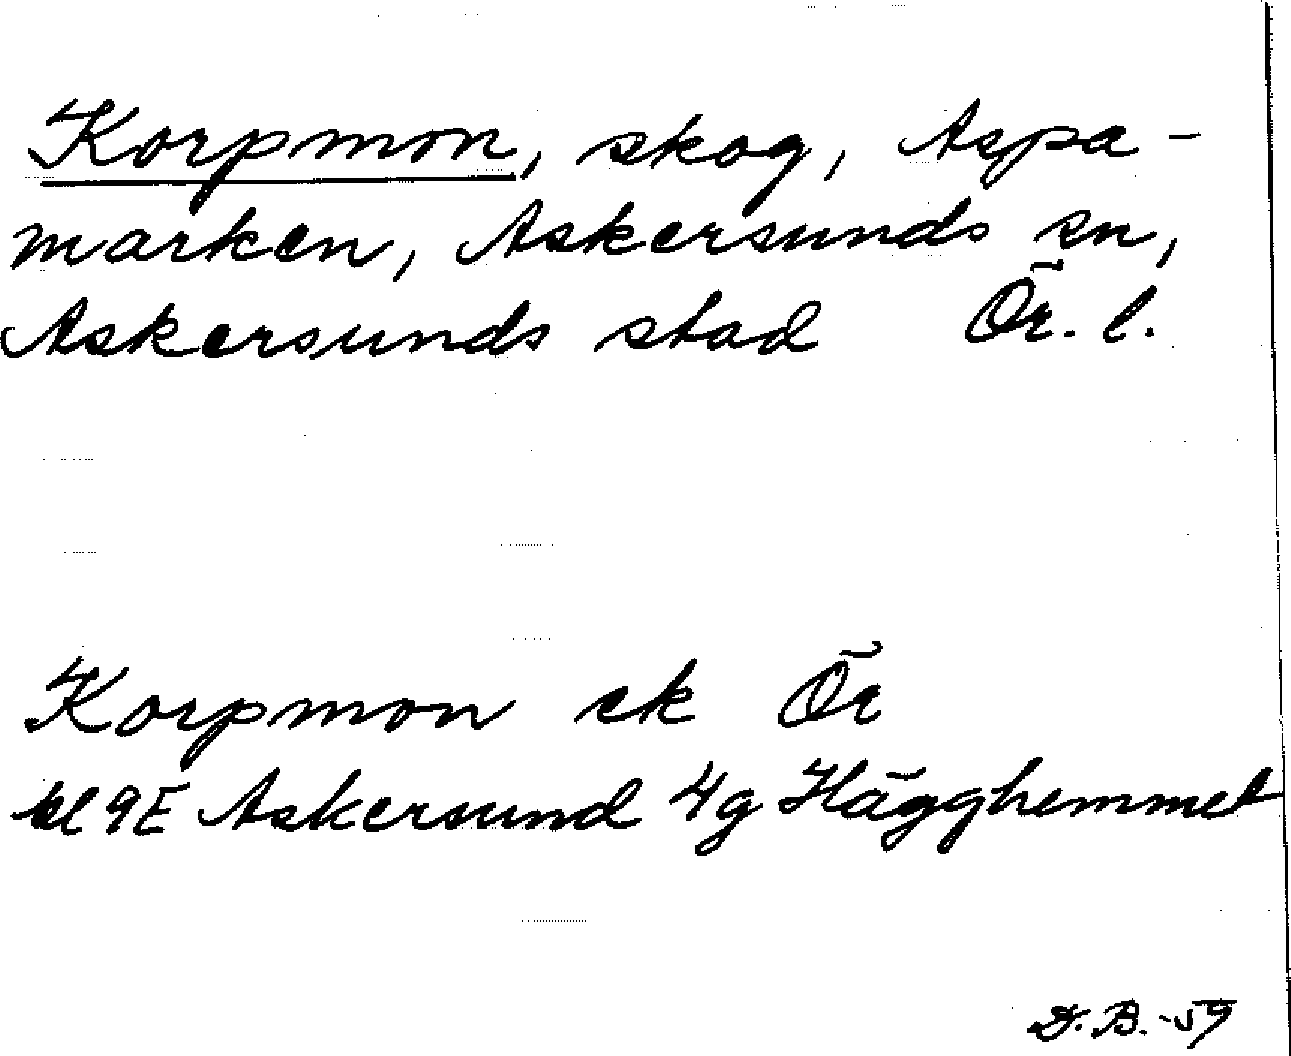 Korpmon, skog, Aspa-
marken, Askersunds sn,
Askersunds stad Ör. l.
Korpmon ek Ör
bl 9E Askersund 4g Hägghemmet
D.B.-59